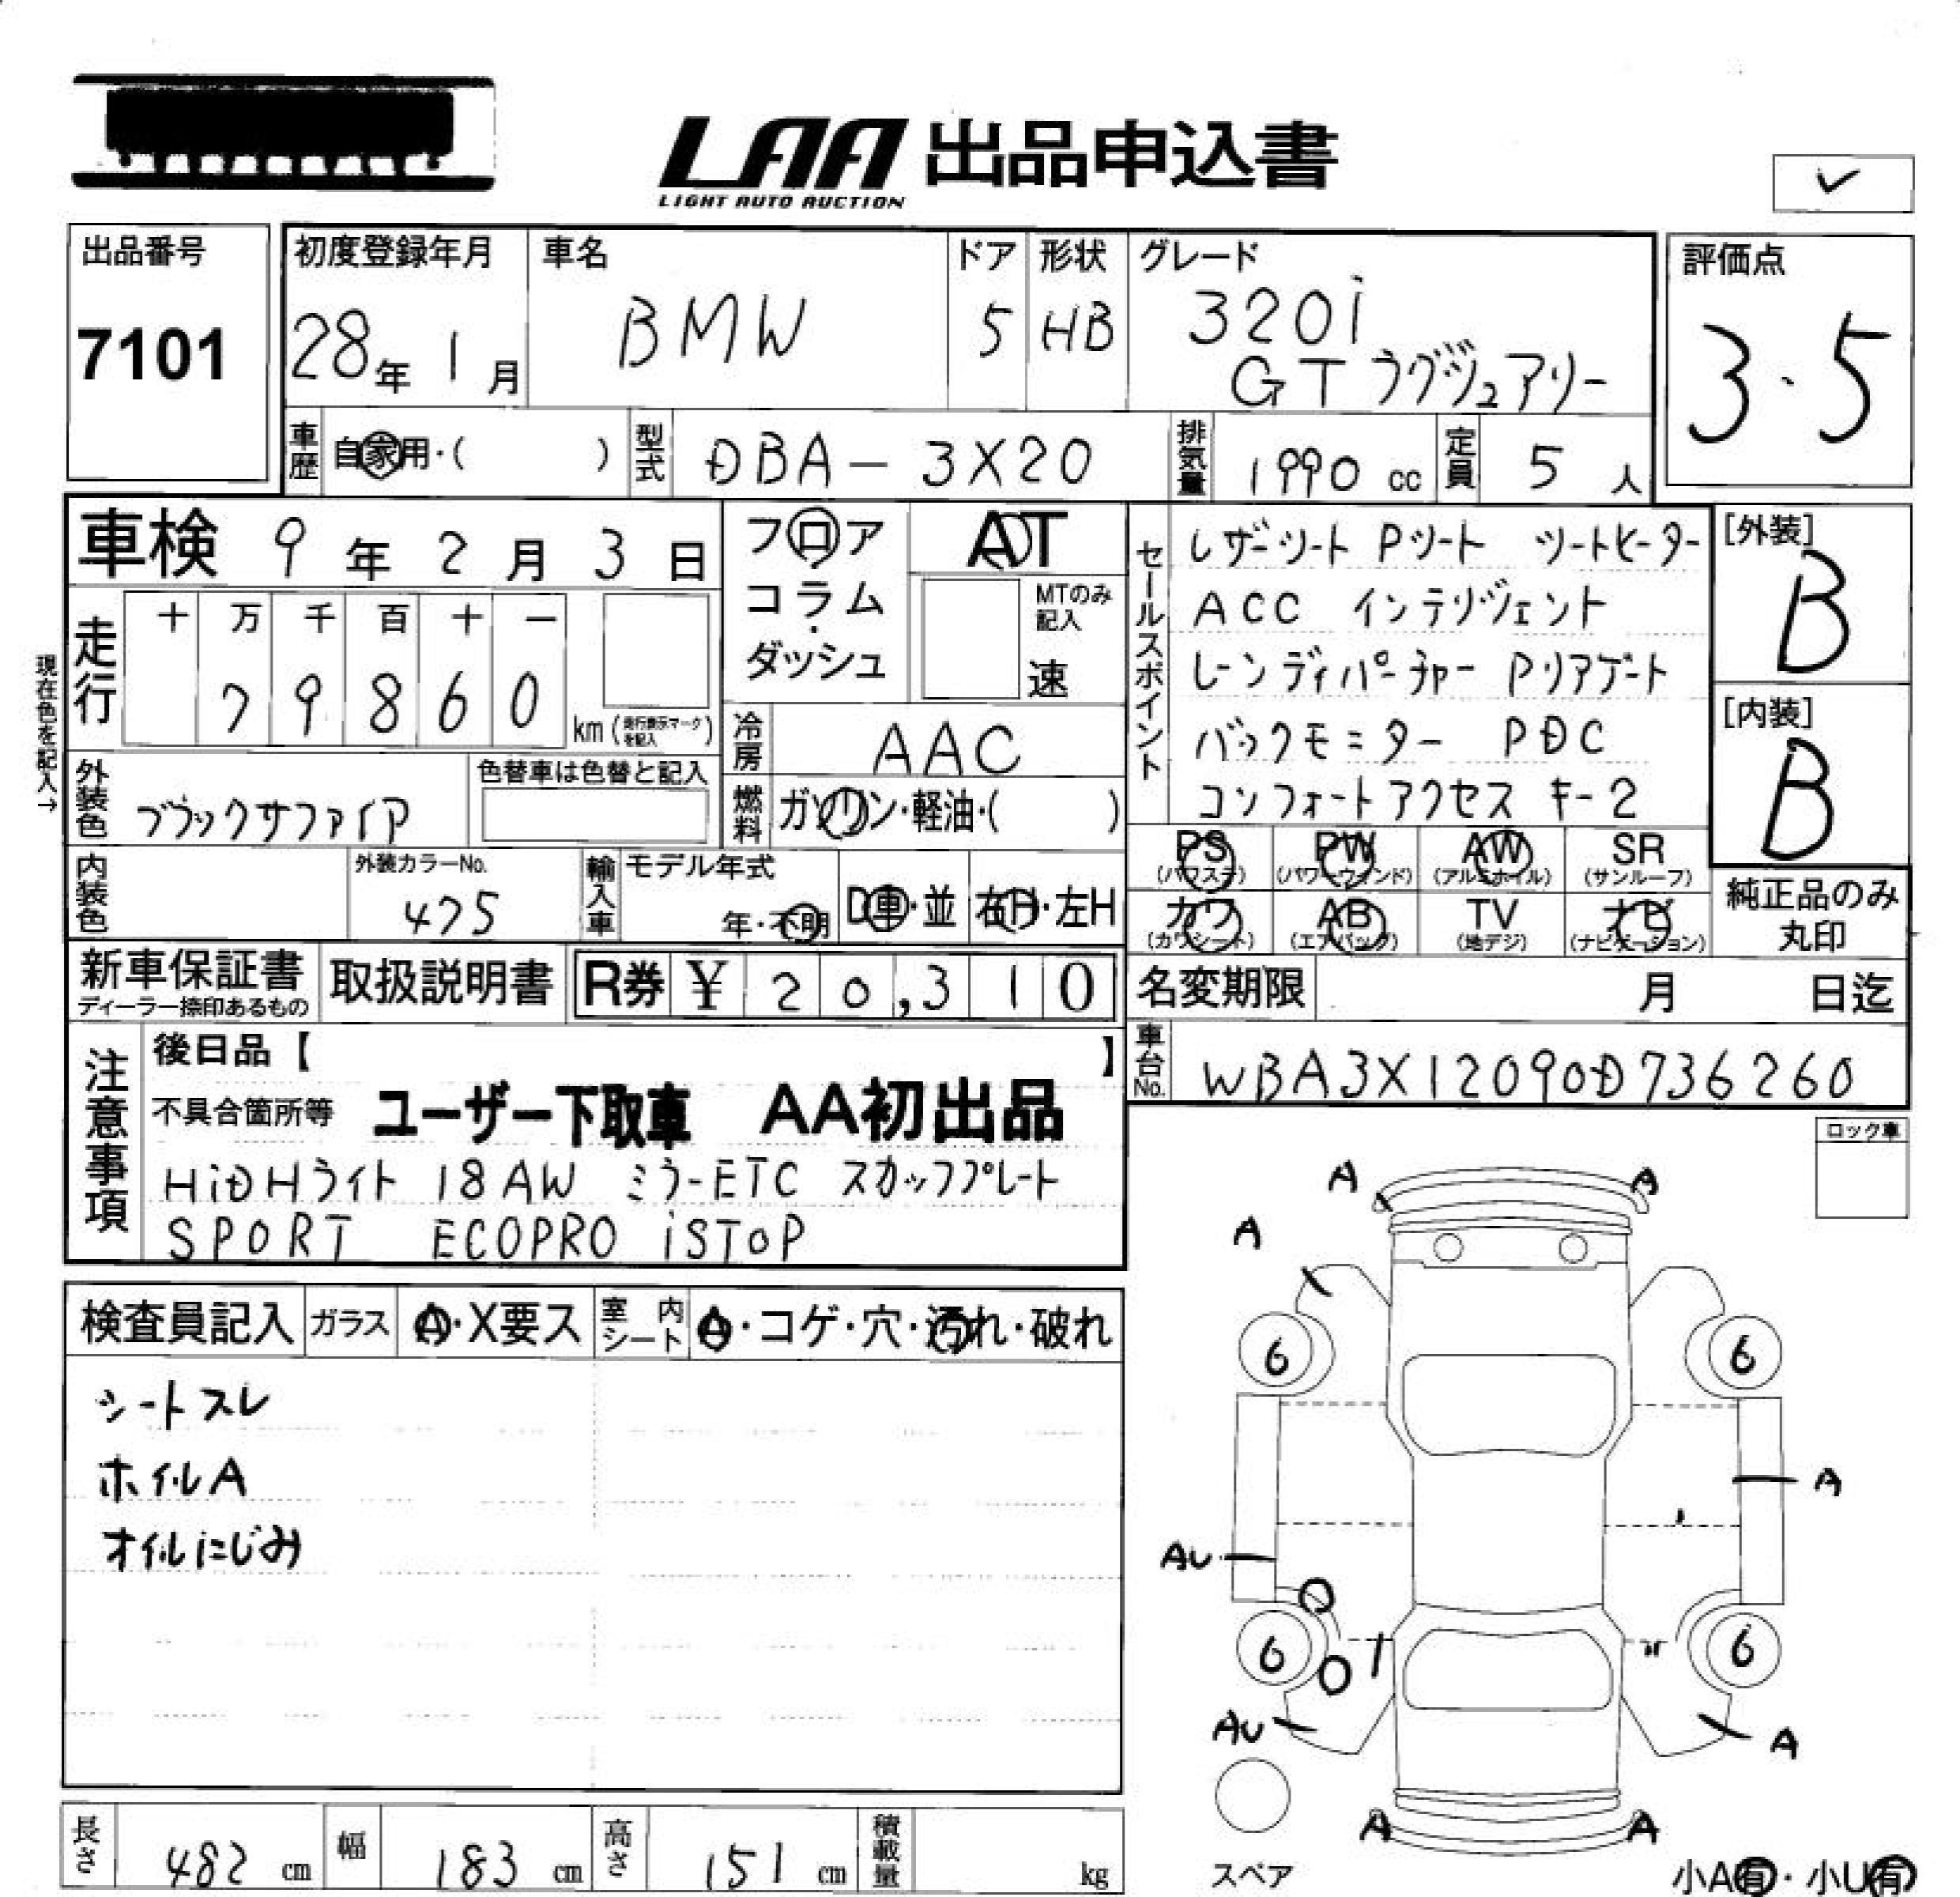 LAA 出品申込書
LIGHT AUTO AUCTION
出品番号
7101
初度登録年月
28年 1月
車名
BMW
ドア
5
形状
HB
グレード
320i
GT ラグジュアリー
評価点
3.5
車歴 自家用・( )
型式 DBA-3X20
排気量 1990 cc
定員 5 人
車検 9年 2月 3日
現在色を記入→
走行
十 万 千 百 十 一
79860
km (走行表示マークを記入)
フロア
コラム
・
ダッシュ
AT
MTのみ
記入
速
冷房 AAC
燃料 ガソリン・軽油・( )
外装色 ブラックサファイア
色替車は色替と記入
内装色
外装カラーNo.
475
輸入車
モデル年式
年・不明
D車・並
右H・左H
セールスポイント
レザーシート Pシート シートヒーター
ACC インテリジェント
レーンディパーチャー Pリアゲート
バックモニター PDC
コンフォートアクセス キー2
[外装]
B
[内装]
B
PS (パワステ)
PW (パワーウィンド)
AW (アルミホイル)
SR (サンルーフ)
カワ (カワシート)
AB (エアバッグ)
TV (地デジ)
ナビ (ナビゲーション)
純正品のみ
丸印
新車保証書
ディーラー捺印あるもの
取扱説明書
R券 ¥ 20,310
名変期限 月 日迄
車台No. WBA3X12090D736260
注意事項
後日品【 】
不具合箇所等 ユーザー下取車 AA初出品
HiDHライト 18AW ミラーETC スカッフプレート
SPORT ECOPRO iSToP
ロック車
検査員記入 ガラス A・X要ス
室内シート A・コゲ・穴・汚れ・破れ
シートスレ
ホイルA
オイルにじみ
A A
A
6 6
A
AU
6 6
AU
A
A A
スペア
小A有・小U有
長さ 482 cm
幅 183 cm
高さ 151 cm
積載量 kg